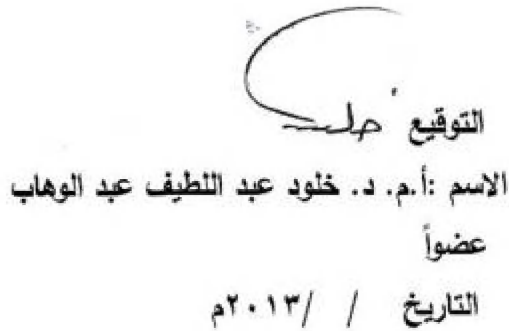 التوقيع
الاسم :أ.م. د. خلود عبد اللطيف عبد الوهاب
عضواً
التاريخ / /٢٠١٣م